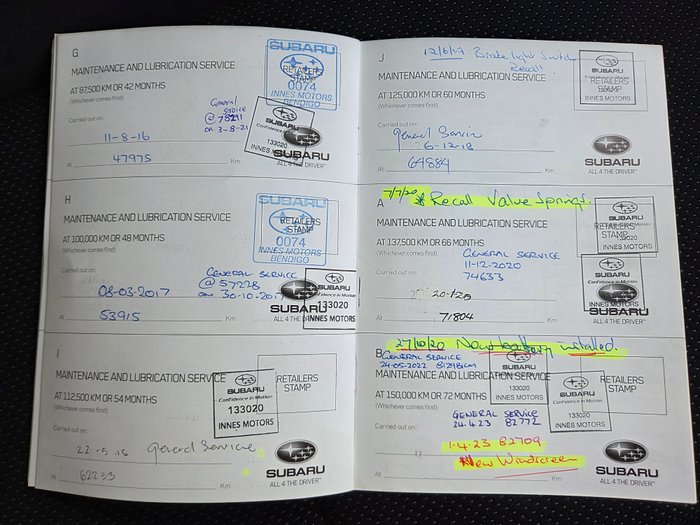 G
MAINTENANCE AND LUBRICATION SERVICE
AT 87,500 KM OR 42 MONTHS
(Whichever comes first)
Carried out on:
11-8-16
At 47975 Km
SUBARU
RETAILERS
STAMP
0074
INNES MOTORS
BENDIGO
General
Service
@ 78211
on 3-8-21
SUBARU
Confidence in Motion
133020
INNES MOTORS
SUBARU
ALL 4 THE DRIVER
H
MAINTENANCE AND LUBRICATION SERVICE
AT 100,000 KM OR 48 MONTHS
(Whichever comes first)
Carried out on:
08-03-2017
At 53915 Km
SUBARU
RETAILERS
STAMP
0074
INNES MOTORS
BENDIGO
GENERAL SERVICE
@ 57228
on 30-10-2017
SUBARU
Confidence in Motion
133020
INNES MOTORS
ALL 4 THE DRIVER
I
MAINTENANCE AND LUBRICATION SERVICE
AT 112,500 KM OR 54 MONTHS
(Whichever comes first)
Carried out on:
22-5-18 General Service
At 62233 Km
RETAILERS
STAMP
SUBARU
Confidence in Motion
133020
INNES MOTORS
SUBARU
ALL 4 THE DRIVER™
J
12/6/17 Brake light Switch
Recall
MAINTENANCE AND LUBRICATION SERVICE
AT 125,000 KM OR 60 MONTHS
(Whichever comes first)
Carried out on:
General Service
6-12-18
At 64884 Km
SUBARU
RETAILERS
STAMP
INNES MOTORS
SUBARU
ALL 4 THE DRIVER™
A
7/7/20 * Recall Valve Springs
MAINTENANCE AND LUBRICATION SERVICE
AT 137,500 KM OR 66 MONTHS
(Whichever comes first)
Carried out on:
GENERAL SERVICE
11-12-2020
74633
At 71804 Km
SUBARU
RETAILERS
STAMP
133020
INNES MOTORS
SUBARU
INNES MOTORS
ALL 4 THE DRIVER
27/10/20 New battery installed.
B
GENERAL SERVICE
24-05-2022 81298KM
MAINTENANCE AND LUBRICATION SERVICE
AT 150,000 KM OR 72 MONTHS
(Whichever comes first)
Carried out on:
GENERAL SERVICE
24.4.23 82772
1.4.23 82709
New Windscreen
At Km
SUBARU
133020
INNES MOTORS
SUBARU
133020
INNES MOTORS
RETAILERS
STAMP
SUBARU
ALL 4 THE DRIVER™